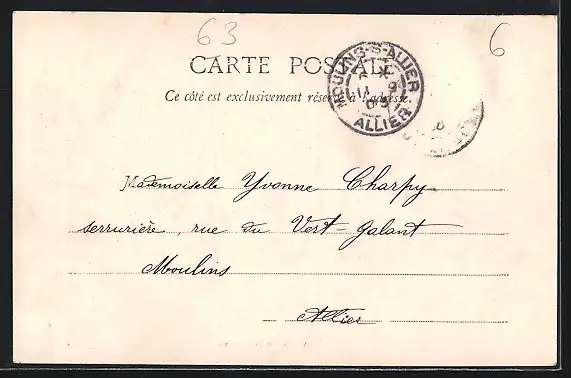 63
6
CARTE POSTALE
MOULINS-S-ALLIER
ALLIER
Ce côté est exclusivement réservé à l'adresse.
Mademoiselle Yvonne Charpy
serrurière, rue du Vert-galant
Moulins
Allier